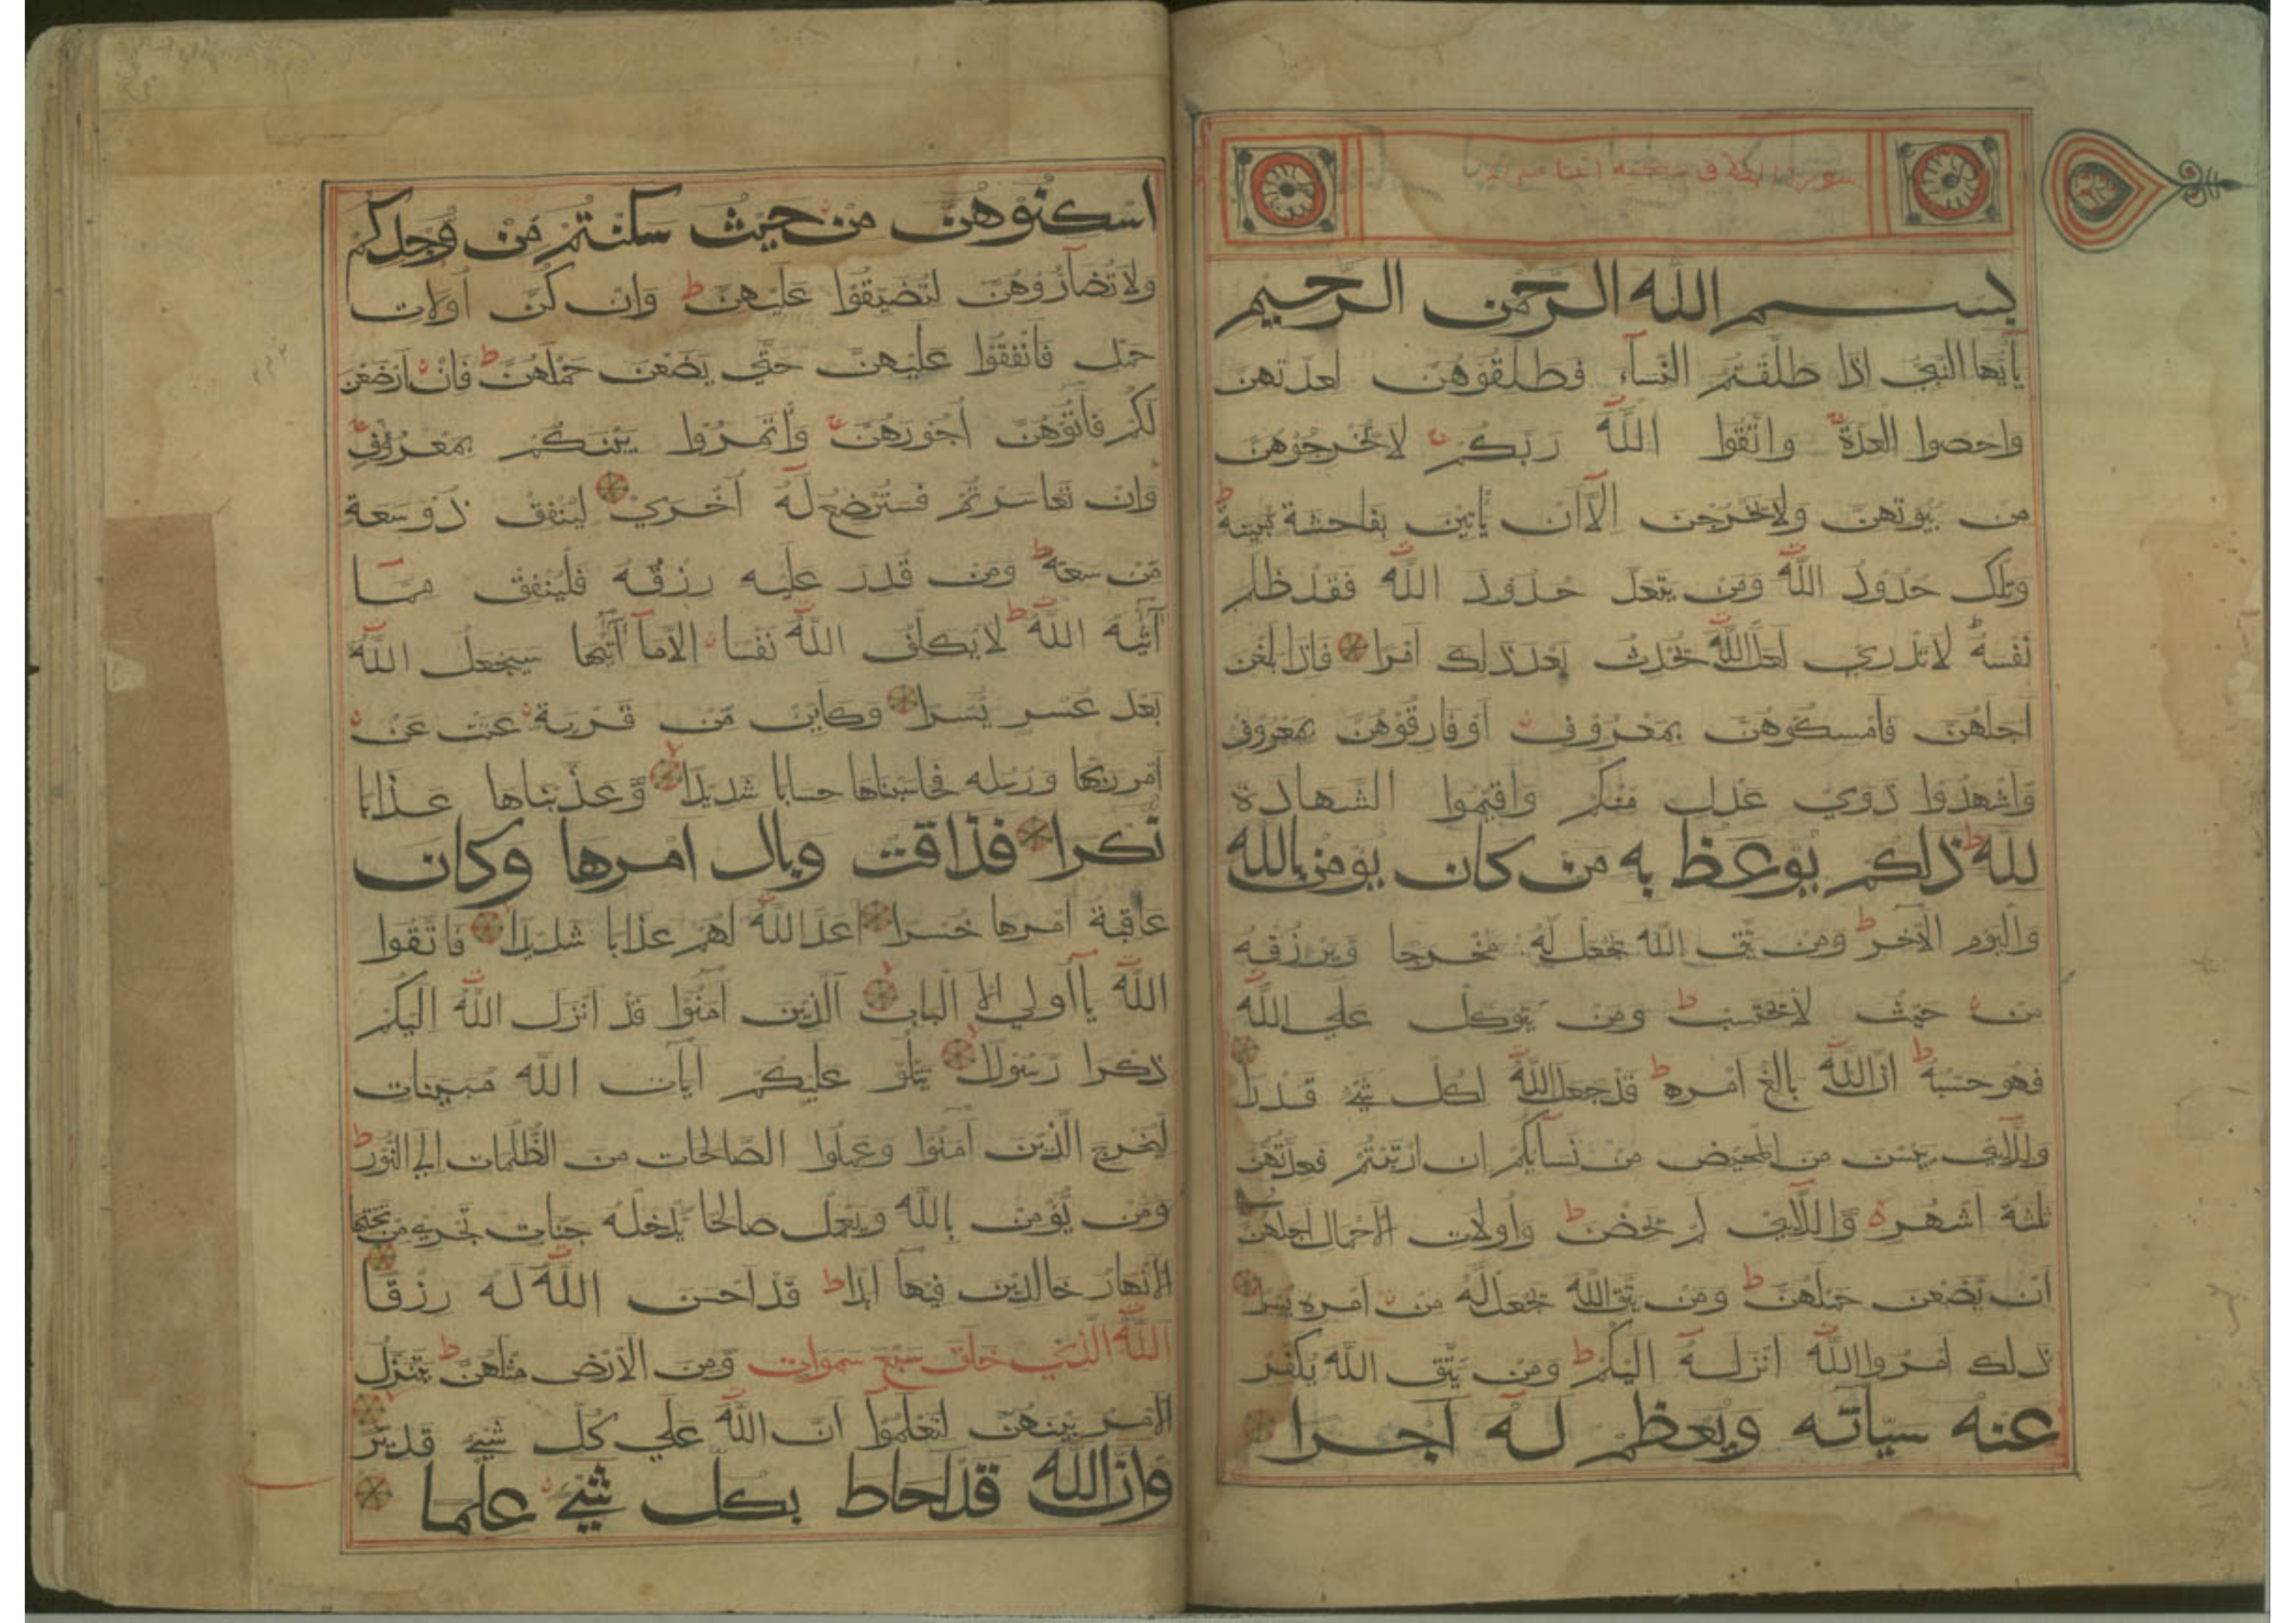 سورة الطلاق
بسم الله الرحمن الرحيم
يأيها النبي اذا طلقتم النساء فطلقوهن لعدتهن
واحصوا العدة واتقوا الله ربكم لا تخرجوهن
من بيوتهن ولا يخرجن الا ان يأتين بفاحشة مبينة
وتلك حدود الله ومن يتعد حدود الله فقد ظلم
نفسه لا تدري لعل الله يحدث بعد ذلك امرا فاذا بلغن
اجلهن فأمسكوهن بمعروف او فارقوهن بمعروف
واشهدوا ذوي عدل منكم واقيموا الشهادة
لله ذلكم يوعظ به من كان يؤمن بالله
واليوم الآخر ومن يتق الله يجعل له مخرجا ويرزقه
من حيث لا يحتسب ومن يتوكل علي الله
فهو حسبه ان الله بالغ امره قد جعل الله لكل شيء قدرا
واللائي يئسن من المحيض من نسائكم ان ارتبتم فعدتهن
ثلثة اشهر واللائي لم يحضن وأولات الاحمال اجلهن
ان يضعن حملهن ومن يتق الله يجعل له من امره يسرا
ذلك امر الله انزله اليكم ومن يتق الله يكفر
عنه سيآته ويعظم له اجرا
اسكنوهن من حيث سكنتم من وجدكم
ولا تضاروهن لتضيقوا عليهن وان كن اولات
حمل فأنفقوا عليهن حتي يضعن حملهن فان ارضعن
لكم فآتوهن اجورهن وأتمروا بينكم بمعروف
وان تعاسرتم فسترضع له اخري لينفق ذو سعة
من سعته ومن قدر عليه رزقه فلينفق مما
آتيه الله لا يكلف الله نفسا الا ما آتيها سيجعل الله
بعد عسر يسرا وكاين من قرية عتت عن
امر ربها ورسله فحاسبناها حسابا شديدا وعذبناها عذابا
نكرا فذاقت وبال امرها وكان
عاقبة امرها خسرا اعد الله لهم عذابا شديدا فاتقوا
الله يا اولي الالباب الذين امنوا قد انزل الله اليكم
ذكرا رسولا يتلو عليكم آيات الله مبينات
ليخرج الذين آمنوا وعملوا الصالحات من الظلمات الي النور
ومن يؤمن بالله ويعمل صالحا يدخله جنات تجري من تحتها
الانهار خالدين فيها ابدا قد احسن الله له رزقا
الله الذي خلق سبع سموات ومن الارض مثلهن يتنزل
الامر بينهن لتعلموا ان الله علي كل شيء قدير
وان الله قد احاط بكل شيء علما